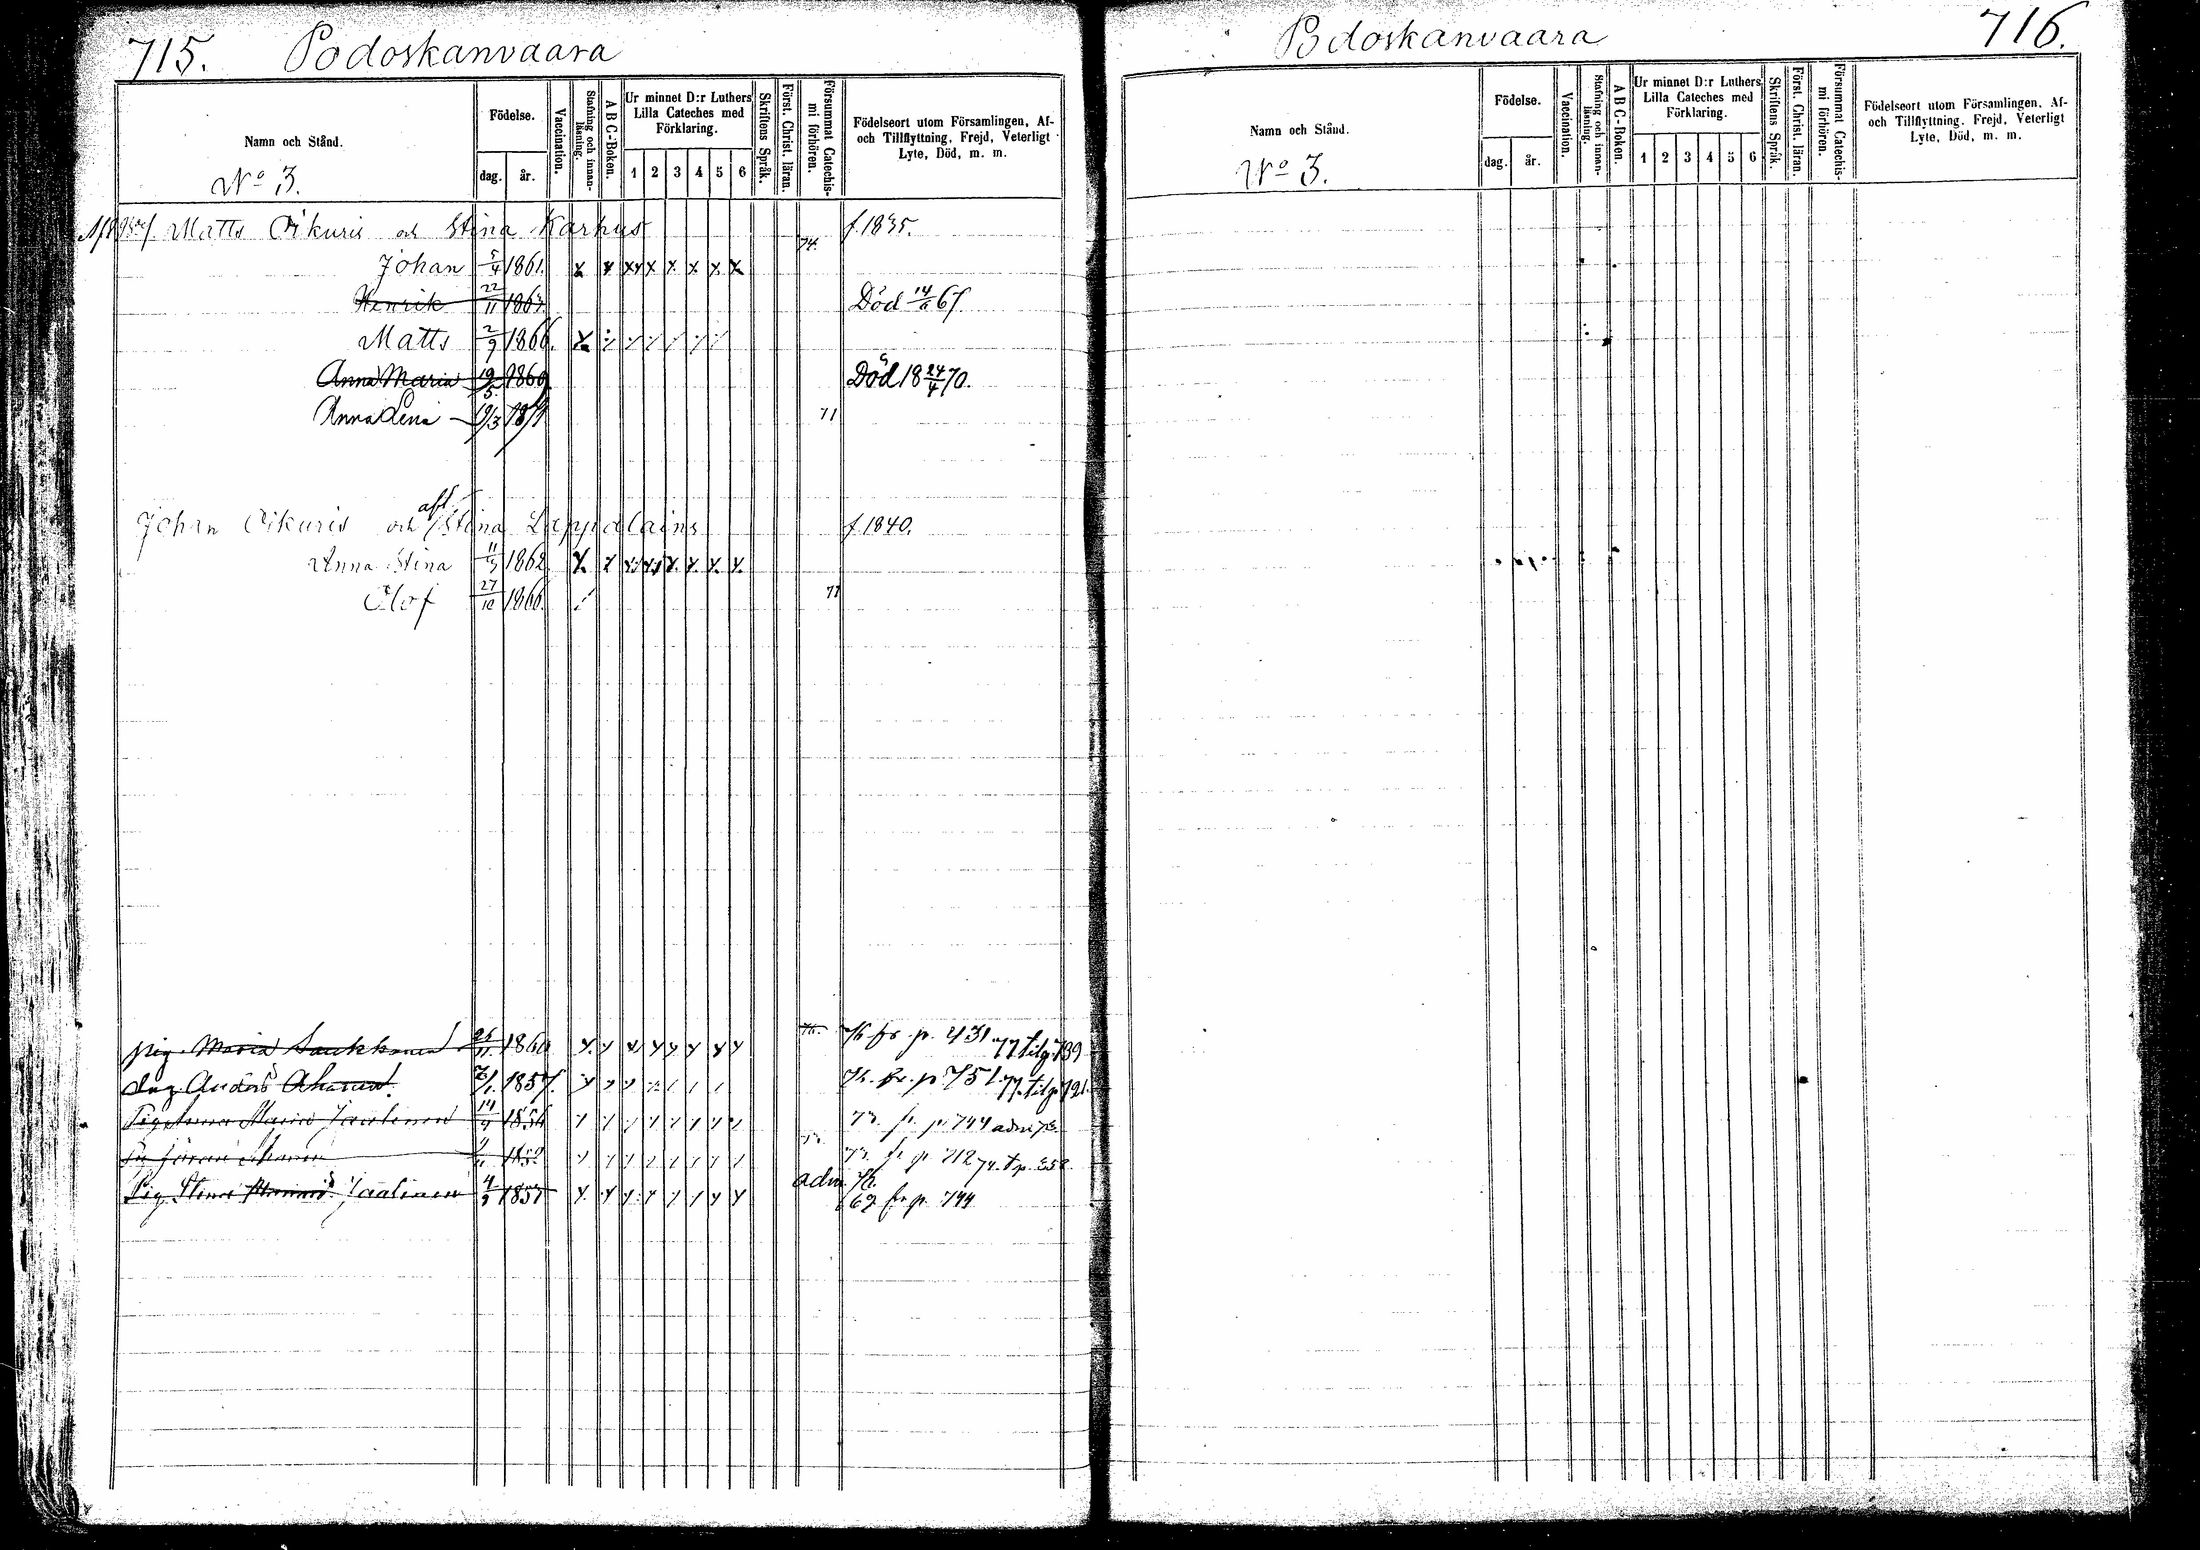 715. Podoskanvaara
Namn och Stånd.
No 3.
Födelse.
dag. år.
Vaccination.
Stafning och innanläsning.
A B C-Boken.
Ur minnet D:r Luthers Lilla Cateches med Förklaring.
1 2 3 4 5 6
Skriftens Språk.
Först. Christ. läran.
Försummat Catechismi förhören.
Födelseort utom Församlingen, Af- och Tillflyttning, Frejd, Veterligt Lyte, Död, m. m.
Matts Oikuris och Stina Karhus f. 1835.
74.
Johan 5/4 1861. x x xx x x x x x
Henrik 22/11 1863. Död 14/6 67.
Matts 2/9 1866.
Anna Maria 19/5 1869 Död 18 24/4 70.
Anna Lena 19/3 1871 71
Johan Oikuris och Stina Lappalains f. 1840.
Anna Stina 11/9 1862
Olof 27/10 1866. 71
pig. Maria Saukkonen 1860 76 fr. p. 431 77 till p. 739
Anders Ahonen 7/1 1857. 76 fr. p 751 77 till p. 721.
Pig Anna Maria Jaalinen 14/9 1854 73. fr. p. 744 adm 73.
73. fr p. 712 74. t p. 552
adm 72.
Pig Stina Jaalinen 4/9 1857 69 fr p. 744
Podoskanvaara 716.
Namn och Stånd.
No 3.
Födelse.
dag. år.
Vaccination.
Stafning och innanläsning.
A B C-Boken.
Ur minnet D:r Luthers Lilla Cateches med Förklaring.
1 2 3 4 5 6
Skriftens Språk.
Först. Christ. läran.
Försummat Catechismi förhören.
Födelseort utom Församlingen, Af- och Tillflyttning, Frejd, Veterligt Lyte, Död, m. m.